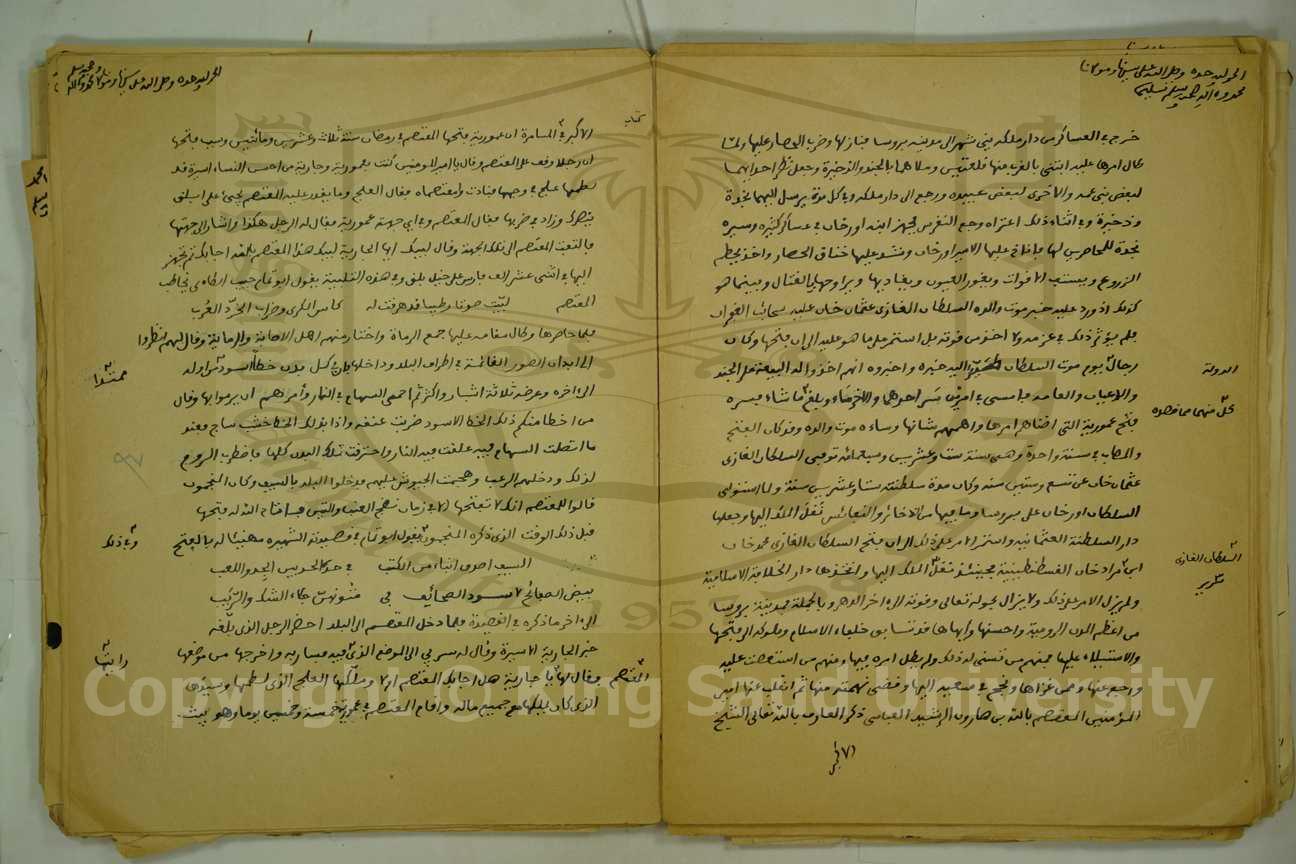 الحمد لله وحده وصلى الله على سيدنا ومولانا
محمد وءاله وصحبه وسلم تسليما
خرج في العساكر من دار ملكه يني شهر الى مدينة بروسا فنازلها وضرب الحصار عليها ولما
طال امرها عليه ابتنى بالقرب منها قلعتين وملأهما بالجند والذخيرة وجعل نظر احداهما
لبعض بني عمه والاخرى لبعض عبيده ورجع الى دار ملكه وفي كل مدة يرسل اليهما نجدة
وذخيرة وفي اثناء ذلك اعتراه وجع النقرس فجهز ابنه اورخان في عساكر كثيرة وسيره
نجدة للمحاصرين لها فاناخ عليها الامير اورخان وشد عليها خناق الحصار واخذ يحطم
الزروع وينسف الاقوات ويغور العيون ويغاديها ويراوحها بالقتال وبينما هو
كذلك اذ ورد عليه خبر موت والده السلطان الغازي عثمان خان عليه سحائب الغفران
فلم يؤثر ذلك في عزمه ولا اخذ من قوته بل استمر على ما هو عليه الى ان فتحها وكان
رجال الدولة يوم موت السلطان اليه خبره واخبروه انهم اخذوا له البيعة على الجند
والاعيان والعامة فامسى في امرين سر احدهما والاخر ساء وبلغ كل منهما مما قصده ما شاء فسره
فتح عمورية التي اعياهم امرها واهمهم شانها وساءه موت والده وقد كان الفتح
والمصاب في سنة واحدة وهي سنة ست وعشرين وسبعمائة توفي السلطان الغازي
عثمان خان عن تسع وستين سنة وكان مدة سلطنته ستا وعشرين سنة ولما استولى
السلطان اورخان على بروسا وما فيها من الذخائر والنفائس نقل الملك اليها وجعلها
دار السلطنة العثمانية واستمر الامر على ذلك الى ان فتح السلطان الغازي محمد خان
ابن مراد خان القسطنطينية فنقل الملك اليها واتخذها دار الخلافة الاسلامية
ولم يزل الامر على ذلك ولا يزال بحول الله تعالى وقوته الى ءاخر الدهر وبالجملة فمدينة بروسا
من اعظم المدن الرومية واحسنها وابهاها قد تسابق خلفاء الاسلام وملوكه الى فتحها
والاستيلاء عليها فمنهم من تسنى له ذلك ولم يطل امره فيها ومنهم من استعصت عليه
ورجع عنها وممن غزاها ونجح في سعيه اليها وقضى نهمته منها ثم انقلب عنها امير
المؤمنين المعتصم بالله بن هارون الرشيد العباسي ذكر العارف بالله تعالى الشيخ
الاكبر
الدولة
كل منهما مما قصده
السلطان الغازي
الحمد لله وحده وصلى الله على سيدنا ومولانا محمد وءاله
وصحبه وسلم
الاكبر في كتاب المسامرة ان عمورية فتحها المعتصم في رمضان سنة ثلاث وعشرين ومائتين وسبب فتحها
ان رجلا وقف على المعتصم وقال يا امير المومنين كنت بعمورية وجارية من احسن النساء اسيرة قد
لطمها علج في وجهها فنادت وامعتصماه فقال العلج وما يقدر عليه المعتصم يجيء على ابلق
ينصرك وزاد في ضربها فقال المعتصم وفي اي جهة عمورية فقال له الرجل هكذا واشار الى جهتها
فالتفت المعتصم الى تلك الجهة وقال لبيك ايتها الجارية لبيك هذا المعتصم بالله اجابك ثم تجهز
اليها في اثني عشر الف فارس على خيل بلق وفي هذه التلبية يقول ابو تمام حبيب الطاءي يخاطب
المعتصم لبيت صوتا وطيبا قد هرقت له كاس الكرى ورضاب الخرد العرب
فلما حاصرها وطال مقامه عليها جمع الرماة واختار منهم اهل الاصابة والرماية وقال لهم انظروا
الى ابدان الصور القائمة في اطراف البلد خطا اسود من اوله
الى ءاخره وعرضه ثلاثة اشبار واكثر ثم احمى السهام في النار وأمرهم ان يرموا بها وقال
من اخطا منكم ذلك الخط الاسود ضربت عنقه واذا بذلك الخط خشب ساج فعند
ما اتصلت السهام فيه علقت فيه النار واحترقت تلك البدن كلها فاضطرب الروم
لذلك ودخلهم الرعب وهجمت الجيوش عليهم فدخلوا البلد بالسيف وكان المنجمون
قالوا للمعتصم انك لا تفتحها الا في زمان نضج العنب والتين فساق الله له فتحها
قبل ذلك الوقت الذي ذكره المنجمون وفي ذلك يقول ابو تمام في قصيدته الشهيرة مهنيا له بالفتح
السيف اصدق انباء من الكتب في حده الحد بين الجد واللعب
بيض الصفائح لا سود الصحائف في متونهن جلاء الشك والريب
الى ءاخر ما ذكره في القصيدة فلما دخل المعتصم الى البلد احضر الرجل الذي بلغه
خبر الجارية الاسيرة وقال له سر بي الى الموضع الذي رأيتها فيه فسار به واخرجها من موضعها
فقال لها المعتصم يا جارية هل اجابك المعتصم ام لا وملكها العلج الذي لطمها وسيدها
الذي كان يملكها مع جميع ماله واقام المعتصم في عمورية خمسة وخمسين يوما وهو يبث
وفي ذلك
رأيتها
المعتصم
٩٧
Copyright © King Saud University
1957